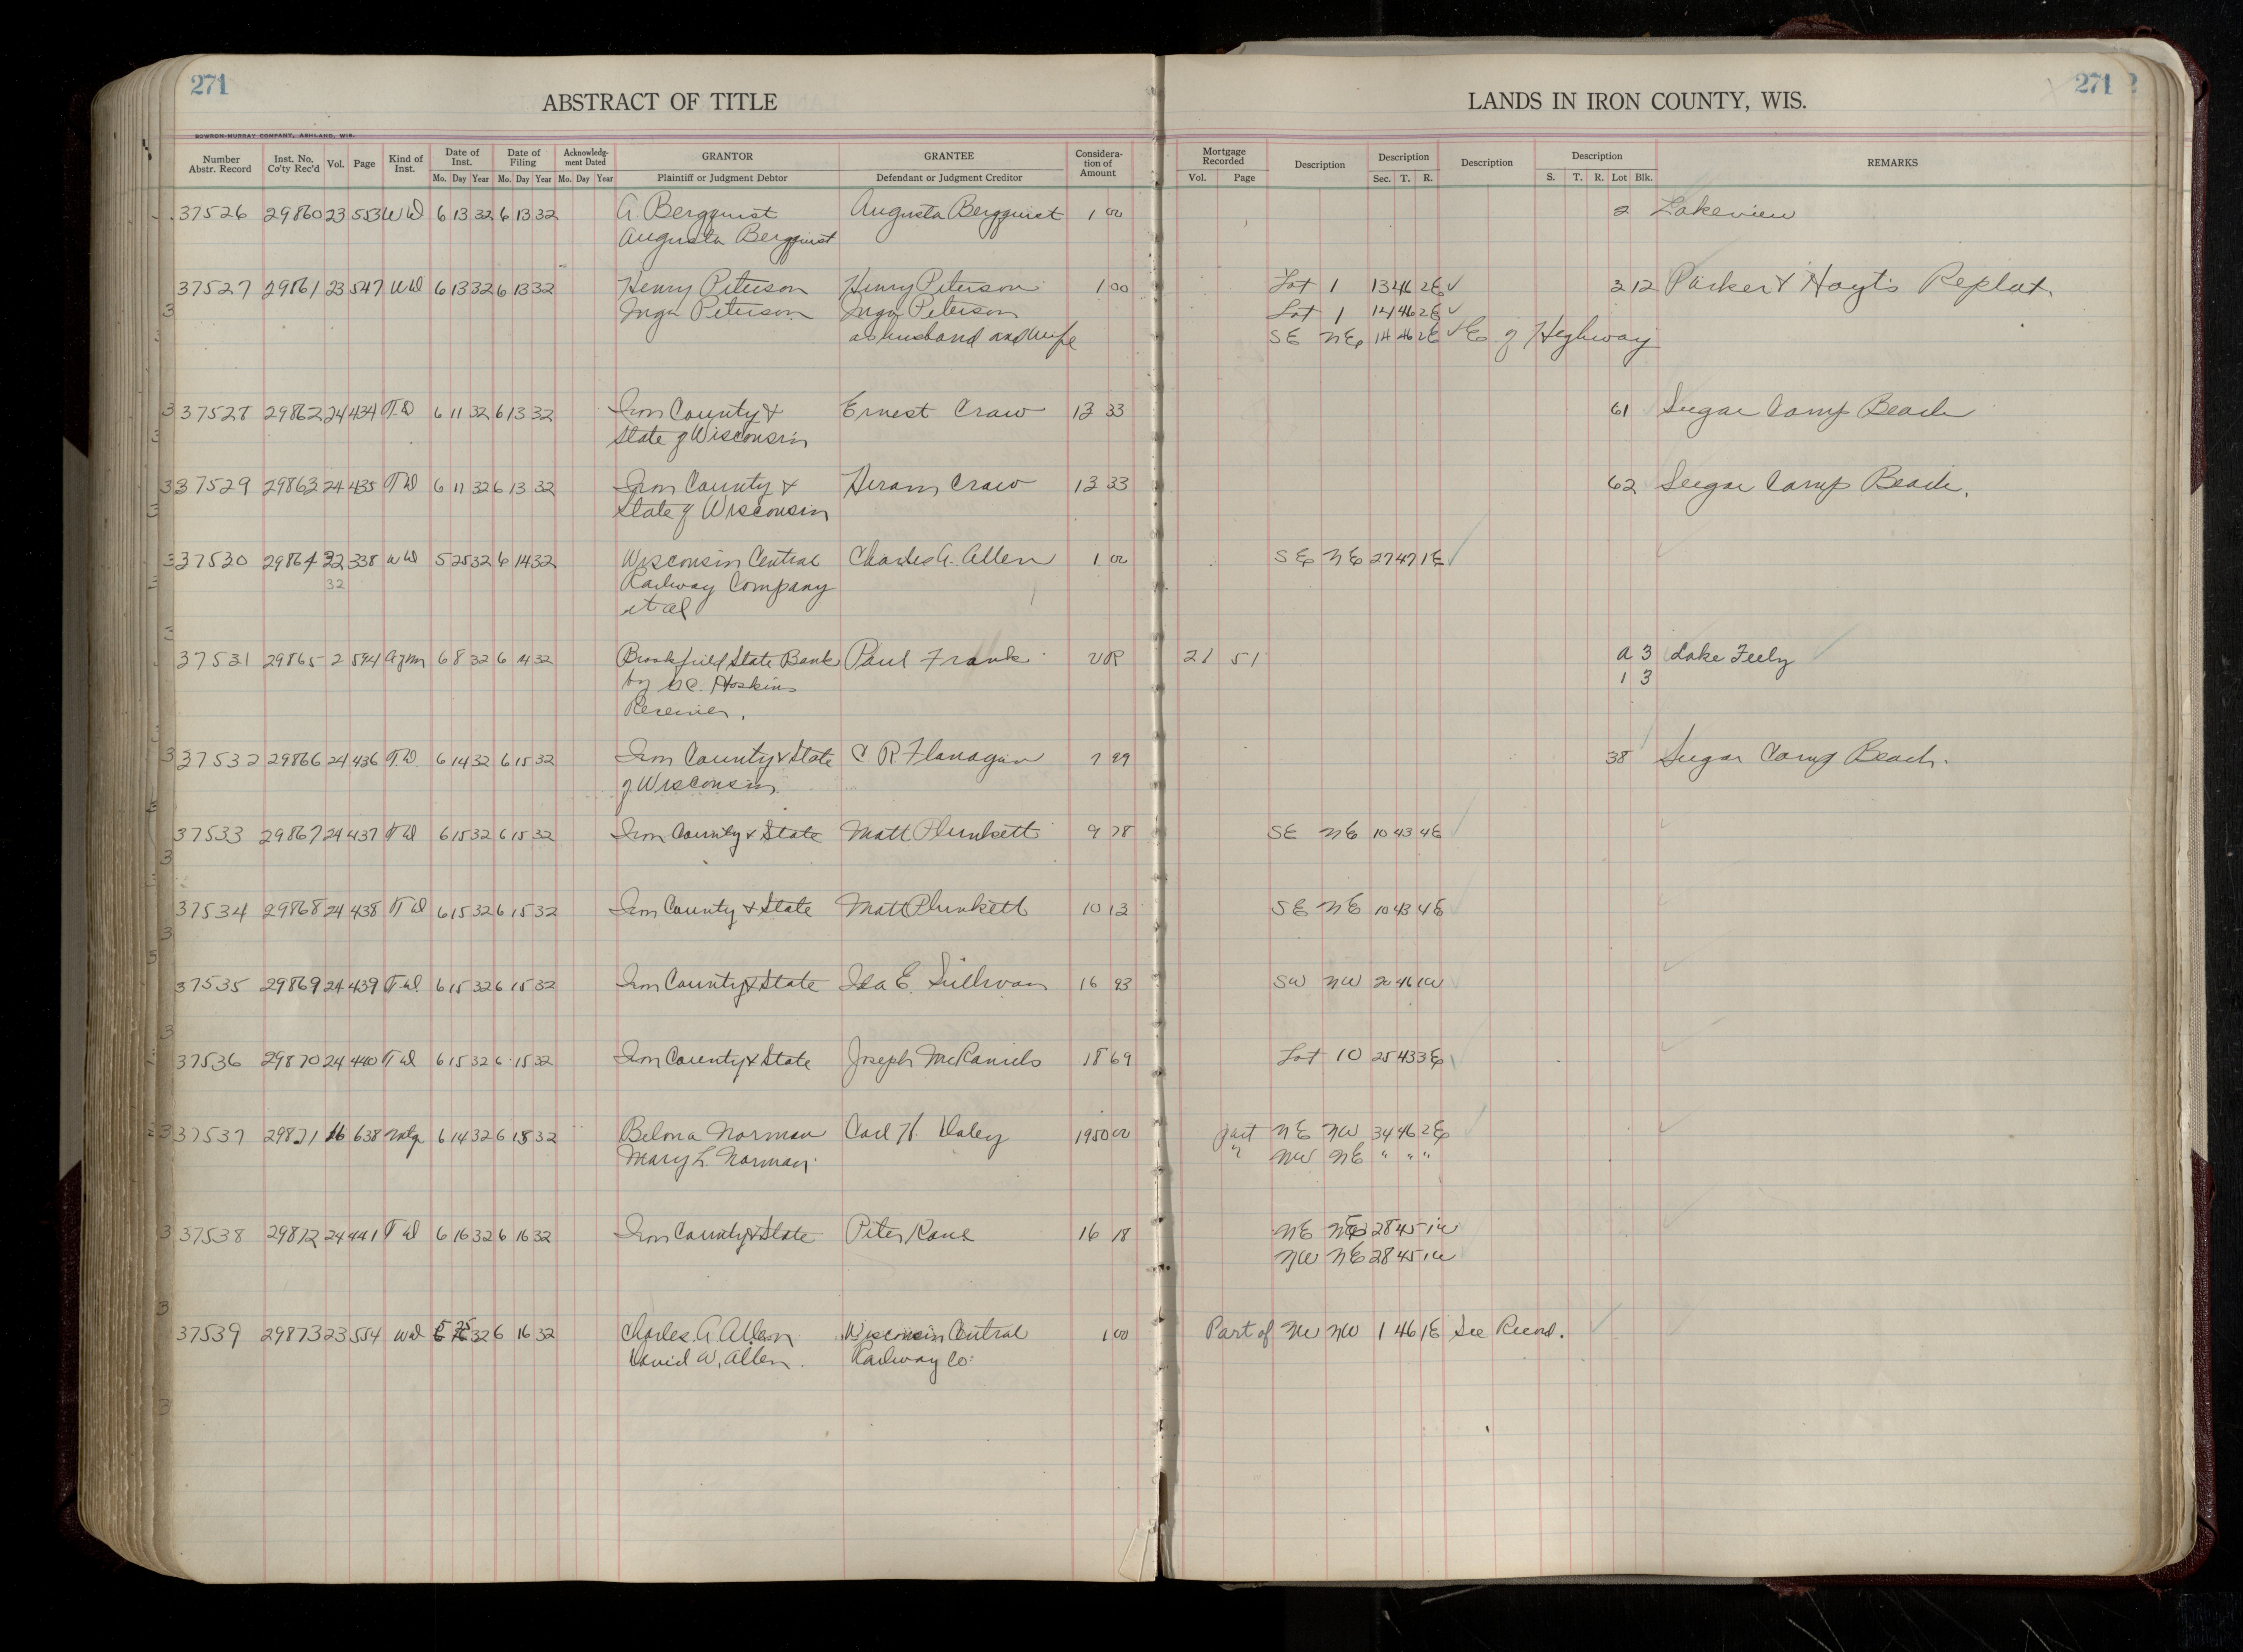 271
ABSTRACT OF TITLE
LANDS IN IRON COUNTY, WIS.
271
BOWRON-MURRAY COMPANY, ASHLAND, WIS.
Number Abstr. Record Inst. No. Co'ty Rec'd Vol. Page Kind of Inst. Date of Inst. Mo. Day Year Date of Filing Mo. Day Year Acknowledg-ment Dated Mo. Day Year GRANTOR Plaintiff or Judgment Debtor GRANTEE Defendant or Judgment Creditor Considera-tion of Amount Mortgage Recorded Vol. Page Description Description Sec. T. R. Description Description S. T. R. Lot Blk. REMARKS
37526 29860 23 553 WD 6 13 32 6 13 32 A. Bergquist Augusta Bergquist 1 00 2 Lakeview
Augusta Bergquist
37527 29861 23 547 WD 6 13 32 6 13 32 Henry Peterson Henry Peterson 1 00 Lot 1 13 46 2E 3 12 Parker & Hoyt's Replat.
Inga Peterson Inga Peterson Lot 1 14 46 2E
as husband and wife SE NE 14 46 2E E of Highway
37528 29862 24 434 T.D 6 11 32 6 13 32 Iron County & Ernest Craw 13 33 61 Sugar Camp Beach
State of Wisconsin
37529 29863 24 435 TD 6 11 32 6 13 32 Iron County & Hiram Craw 13 33 62 Sugar Camp Beach.
State of Wisconsin
37530 29864 22 338 WD 5 25 32 6 14 32 Wisconsin Central Charles A. Allen 1 00 SE NE 27 47 1E
32 Railway Company
et al
37531 29865 2 594 Agm 6 8 32 6 14 32 Brookfield State Bank Paul Frank VR 21 51 A 3 Lake Feely
by Hoskins 1 3
Receiver.
37532 29866 24 436 T.D. 6 14 32 6 15 32 Iron County & State C R Flanagan 7 99 38 Sugar Camp Beach.
of Wisconsin
37533 29867 24 437 TD 6 15 32 6 15 32 Iron County & State Matt Plunkett 9 78 SE NE 10 43 4E
37534 29868 24 438 TD 6 15 32 6 15 32 Iron County & State Matt Plunkett 10 13 SE NE 10 43 4E
37535 29869 24 439 T.D. 6 15 32 6 15 32 Iron County & State Ida E. Sullivan 16 93 SW NW 20 46 1W
37536 29870 24 440 TD 6 15 32 6 15 32 Iron County & State Joseph McDaniels 18 69 Lot 10 25 43 3E
37537 29871 16 638 Mtg 6 14 32 6 15 32 Belona Norman Carl H. Daley 1950 00 part NE NW 34 46 2E
Mary L. Norman " NW NE " " "
37538 29872 24 441 TD 6 16 32 6 16 32 Iron County & State Peter Kane 16 18 NE NE 28 45 1W
NW NE 28 45 1W
37539 29873 23 554 WD 5 25 32 6 16 32 Charles A Allen Wisconsin Central 1 00 Part of NW NW 1 46 1E See Record.
David W. Allen. Railway Co.